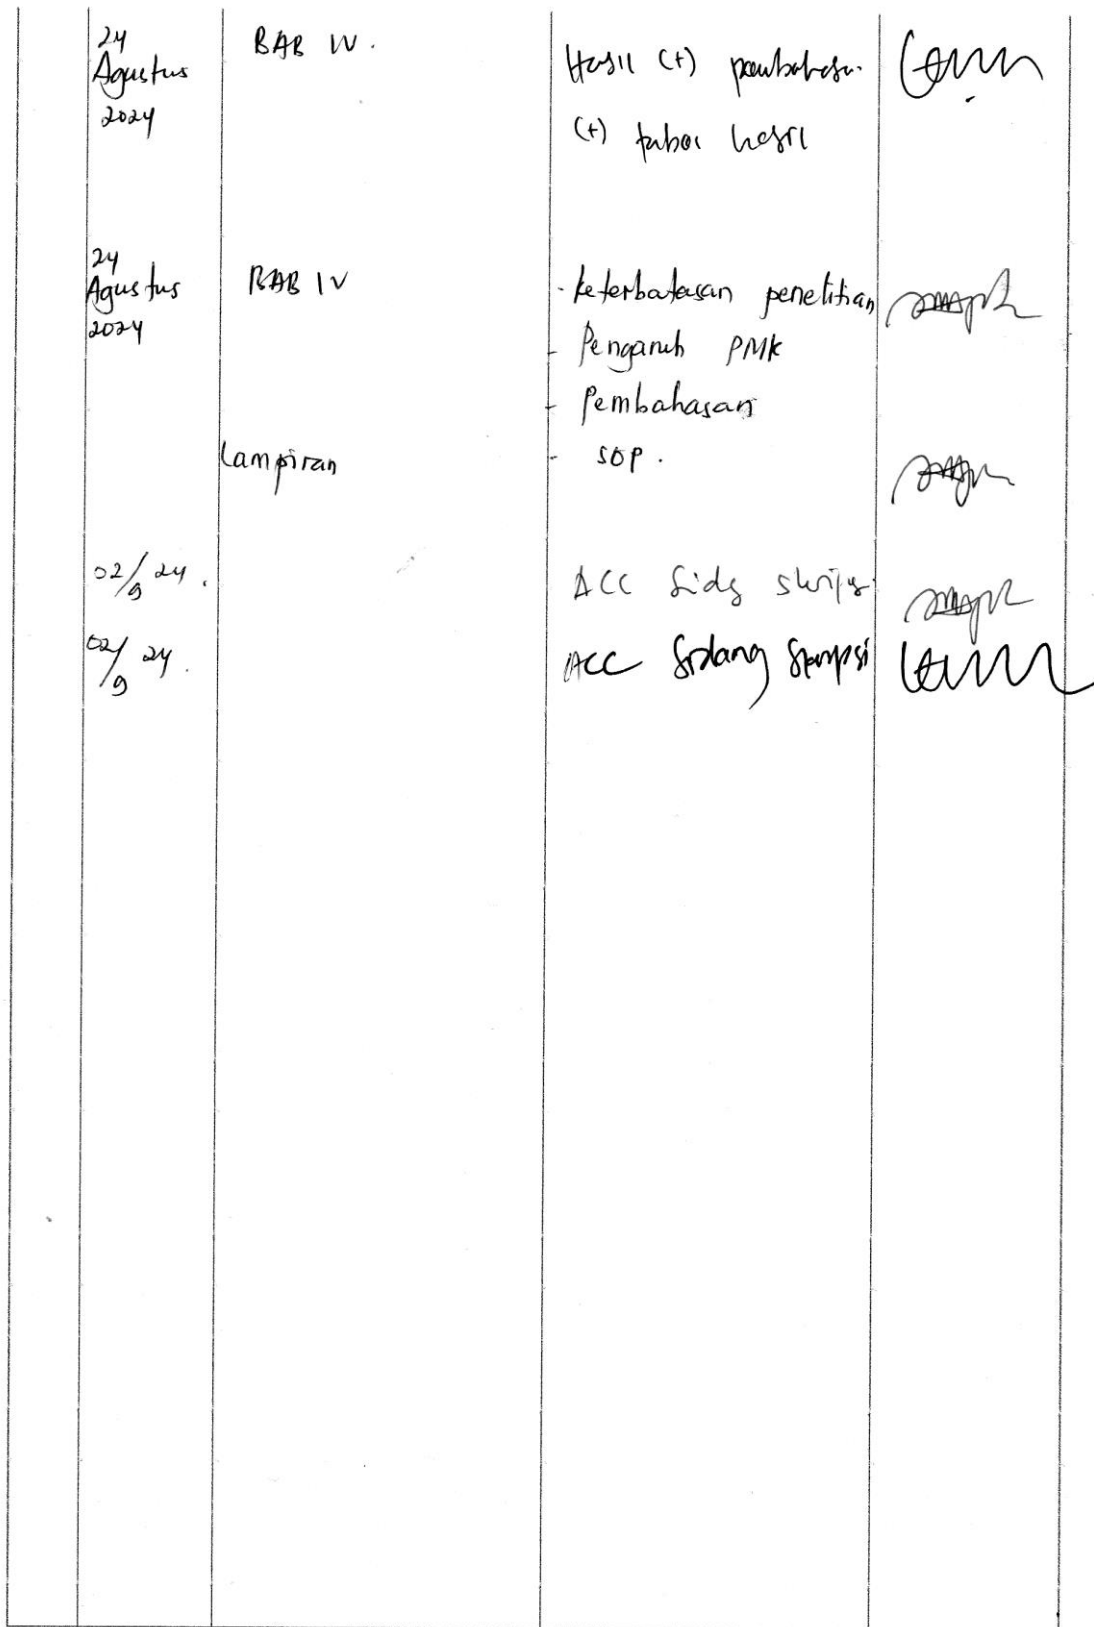 24
Agustus
2024
BAB IV.
Hasil (+) pembahasan
(+) tabel hasil
24
Agustus
2024
BAB IV
- keterbatasan penelitian
- Pengaruh PMK
- Pembahasan
Lampiran
- SOP.
02/9 24.
ACC Sidg skripsi
02/9 24.
ACC Sidang Skripsi